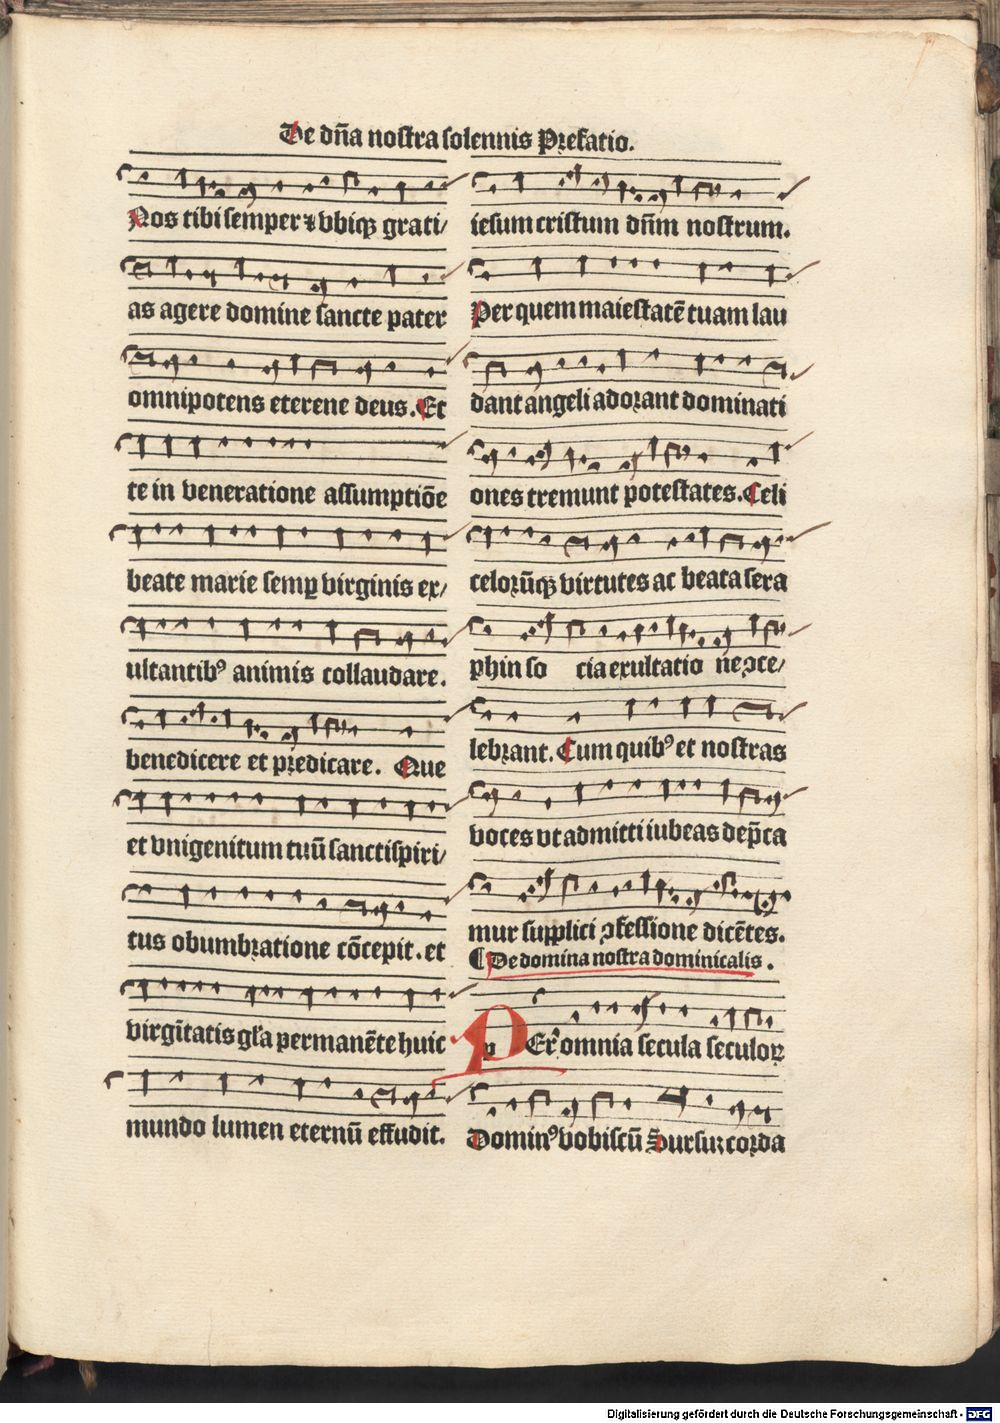 De dn̄a nostra solennis Prefatio.
Nos tibi semper ⁊ vbiqꝫ grati/
as agere domine sancte pater
omnipotens eterene deus. Et
te in veneratione assumptiōe
beate marie semꝑ virginis ex/
ultantibꝰ animis collaudare.
benedicere et predicare. Que
et vnigenitum tuū sanctispiri/
tus obumbratione cōcepit. et
virgītatis gl̄a permanēte huic
mundo lumen eternū effudit.
iesum cristum dn̄m nostrum.
Per quem maiestatē tuam lau
dant angeli adorant dominati
ones tremunt potestates. Celi
celorūqꝫ virtutes ac beata sera
phin so cia exultatio ne ꝯce/
lebrant. Cum quibꝰ et nostras
voces vt admitti iubeas dep̄ca
mur supplici ꝯfessione dicētes.
¶ De domina nostra dominicalis.
p PEr omnia secula seculoꝝ
Dominꝰ vobiscū Sursum corda
Digitalisierung gefördert durch die Deutsche Forschungsgemeinschaft - DFG